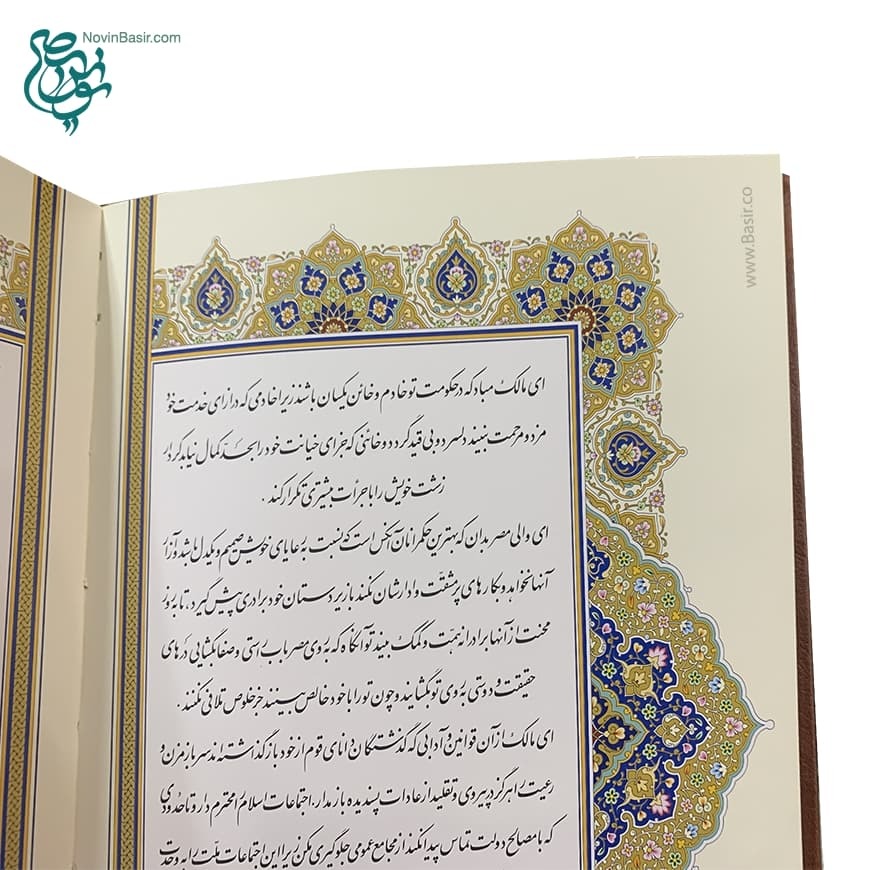 NovinBasir.com
www.Basir.co
ای مالک مباد که در حکومت تو خادم و خائن یکسان باشند زیرا خادمی که در ازای خدمت خود
مزد و مرحمت نبیند دلسرد و بی قید گردد و خائنی که جزای خیانت خود را بحد کمال نیابد کردار
زشت خویش را با جرأت بیشتری تکرار کند .
ای والی مصر بدان که بهترین حکمرانان آنکس است که نسبت به رعایای خویش صمیم و یکدل باشد و آزار
آنها نخواهد و بکارهای پر مشقت وادارشان نکند با زیردستان خود برادری پیش گیرد ، تا به روز
محنت از آنها برادرانه همت و کمک بیند تو آنگاه که به روی مصر باب راستی و صفا بگشایی درهای
حقیقت و دوستی بروی تو گشایند و چون تو را با خود خالص ببینند جز خلوص تلافی نکنند .
ای مالک از آن قوانین و آدابی که گذشتگان دانای قوم از خود باز گذاشته اند سر باز مزن و
رعیت را هرگز در پیروی و تقلید از عادات پسندیده باز مدار. اجتماعات اسلام را محترم دار و تا حدودی
که با مصالح دولت تماس پیدا نکند از مجامع عمومی جلوگیری مکن زیرا این اجتماعات ملت را به وحدت